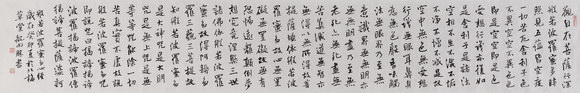 觀自在菩薩行深
般若波羅蜜多時
照見五蘊皆空度
一切苦厄舍利子色
不異空空不異色色
即是空空即是色
受想行識亦復如
是舍利子是諸法
空相不生不滅不垢
不淨不增不減是故
空中無色無受想
行識無眼耳鼻舌
身意無色聲香味
觸法無眼界乃至無
意識界無無明亦
無無明盡乃至無
老死亦無老死盡無
苦集滅道無智亦
無得以無所得故菩
提薩埵依般若波
羅蜜多故心無罣
礙無罣礙故無有
恐怖遠離顛倒夢
想究竟涅槃三世
諸佛依般若波羅
蜜多故得阿耨多
羅三藐三菩提故
知般若波羅蜜多
是大神咒是大明
咒是無上咒是無
等等咒能除一切
苦真實不虛故說
般若波羅蜜多咒
即說咒曰揭諦
揭諦波羅揭諦波羅
僧揭諦菩提薩婆訶
般若波羅蜜多心經
歲在癸巳夏於北
草堂 書